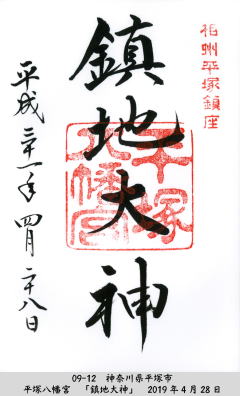 相州平塚鎮座
鎮地大神
平塚八幡宮
平成三十一年四月二十八日
09-12 神奈川県平塚市
平塚八幡宮 「鎮地大神」 2019年4月28日